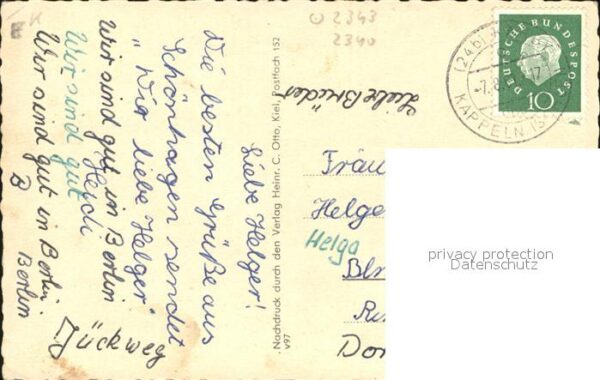 K
2343
2340
Liebe Helger!
Die besten Grüße aus
Schönhagen sendet
"Wir liebe Helger"
Heidi
Wir sind gut in Berlin
Wir sind gut
Wir sind gut in Berlin
B Berlin
Nachdruck durch den Verlag Heinr. C. Otto, Kiel, Postfach 152
v97
Liebe Brüder
DEUTSCHE BUNDESPOST
10
(24b)
KAPPELN
Fräu
Helge
Helga
privacy protection
Datenschutz